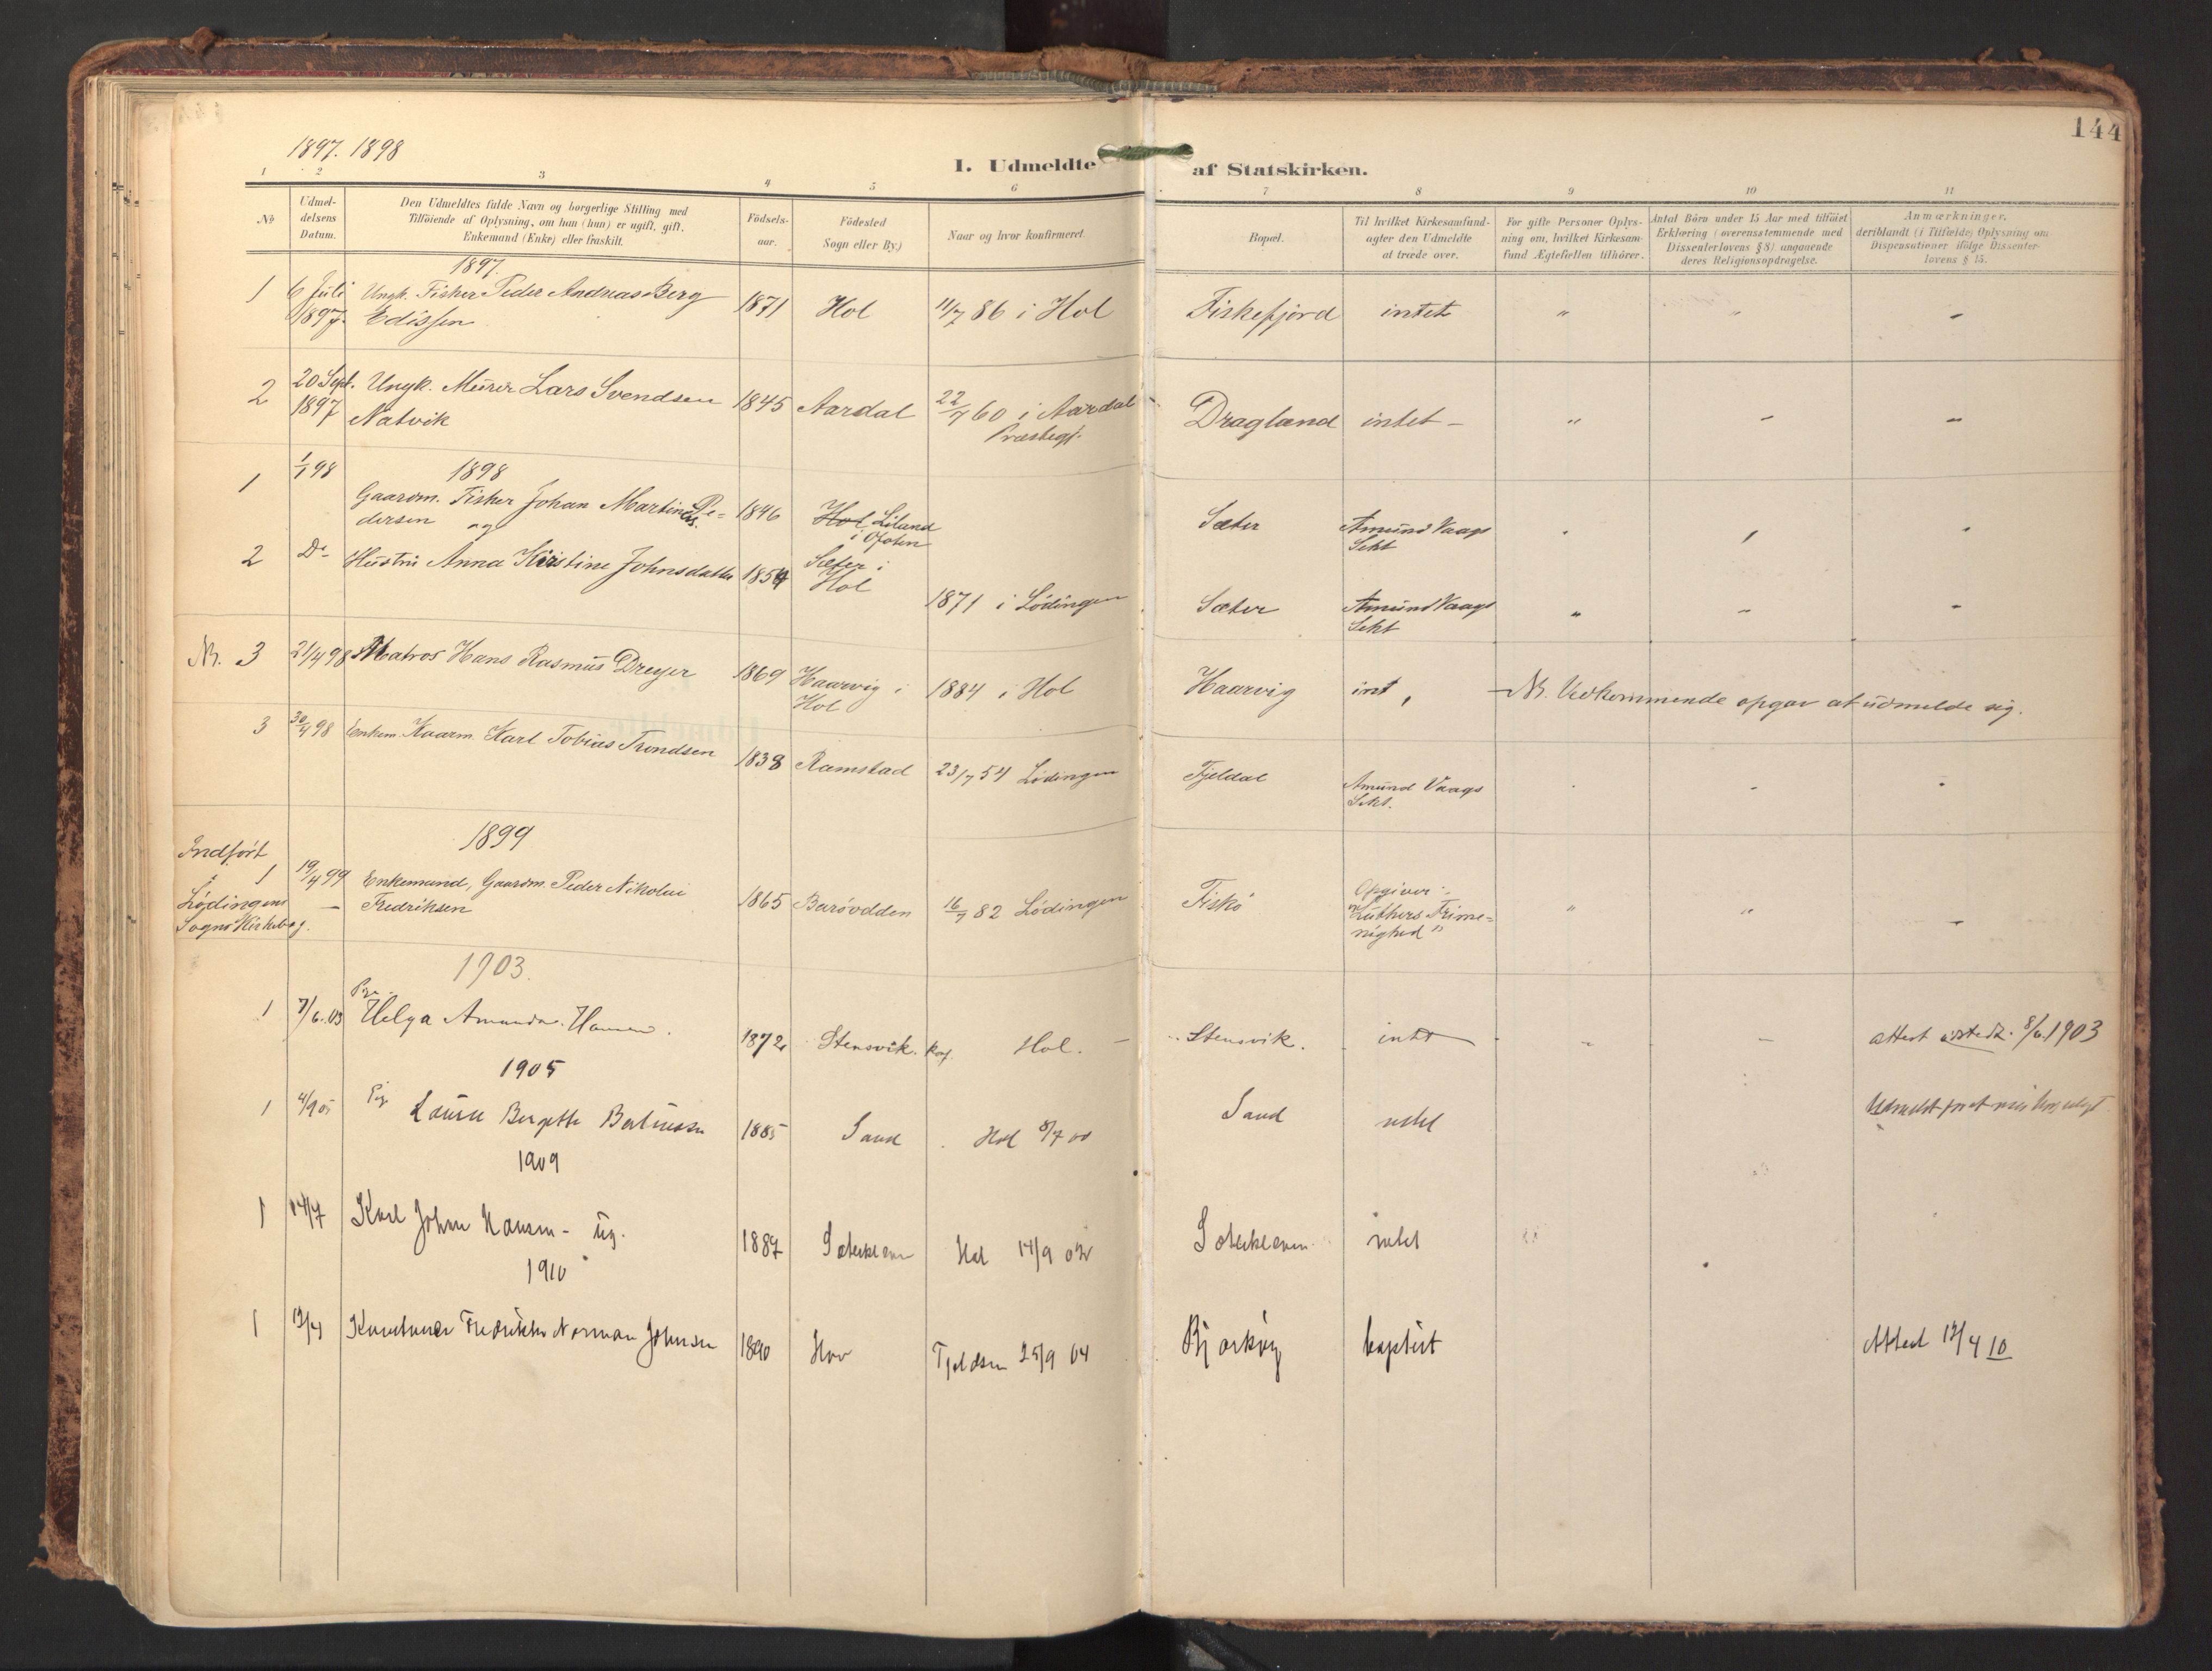 144
1897. 1898
I. Udmeldte af Statskirken.
1 2 3 4 5 6 7 8 9 10 11
No
Udmeldelsens Datum.
Den Udmeldtes fulde Navn og borgerlige Stilling med
Tilföiende af Oplysning, om han (hun) er ugift, gift,
Enkemand (Enke) eller fraskilt.
Födselsaar.
Födested
Sogn eller By.)
Naar og hvor konfirmeret.
Bopæl.
Til hvilket Kirkesamfund
agter den Udmeldte
at træde over.
For gifte Personer Oplysning om, hvilket Kirkesamfund Ægtefællen tilhörer.
Antal Börn under 15 Aar med tilföiet
Erklæring (overensstemmende med
Dissenterlovens § 8) angaaende
deres Religionsopdragelse.
Anmærkninger,
deriblandt (i Tilfælde) Oplysning om
Dispensationer ifölge Dissenterlovens § 15.
1897.
1 6 Juli Ungk. Fisker Peder Andreas Berg 1871 Hol 11/7 86 i Hol Fiskefjord intet " " -
1897. Edissen
2 20 Sept. Ungk. Murer Lars Svendsen 1845 Aardal 22/7 60 i Aardal Dragland intet - " - -
1897 Natvik Præstegj.
1898
1 1/1 98 Gaardm. Fisker Johan Martinus Pe= 1846 Hol Liland Sæter Amund Vaags
dersen og i Ofoten Sekt
2 Do Hustru Anna Kristine Johnsdatter 1854 Sæter i Hol 1871 i Lödingen Sæter Amund Vaags " - -
Sekt
3 21/4 98 Matros Hans Rasmus Dreyer 1869 Haarvig i 1884 i Hol Haarvig int, Vedkommende opgav at udmelde sig.
Hol
3 30/4 98 Enkem. Karl Tobias Trondsen 1838 Ramstad 23/7 54 Lödingen Fjeldal Amund Vaags
Sekt.
1899
Indført
i
1 19/4 99 Enkemand, Gaardm. Peder Nikolai 1865 Baröodden 16/7 82 Lödingen Fiskö Opgiver: " " -
Lödingens - Fredriksen "Luthers Frime=
Sogns Kirkebog. nighed"
1903.
1 7/6.03 Pige Helga Amanda Hansen. 1872 Stensvik. Kof. Hol. - Stensvik. intet " - attest udstedt. 8/6 1903
1905
1 4/9 05 Pig Laura Bergette 1885 Sand Hol 8/7 00 Sand intet
1909
1 14/7 Karl Johan Hansen - ug. 1887 Sæterkleven Hol 14/9 02 Sæterkleven intet
1910
1 12/4 Fredrikke Norman Johnsen 1890 Hov Tjeldsun 25/9 04 Bjarköy baptist Attest 12/4 10